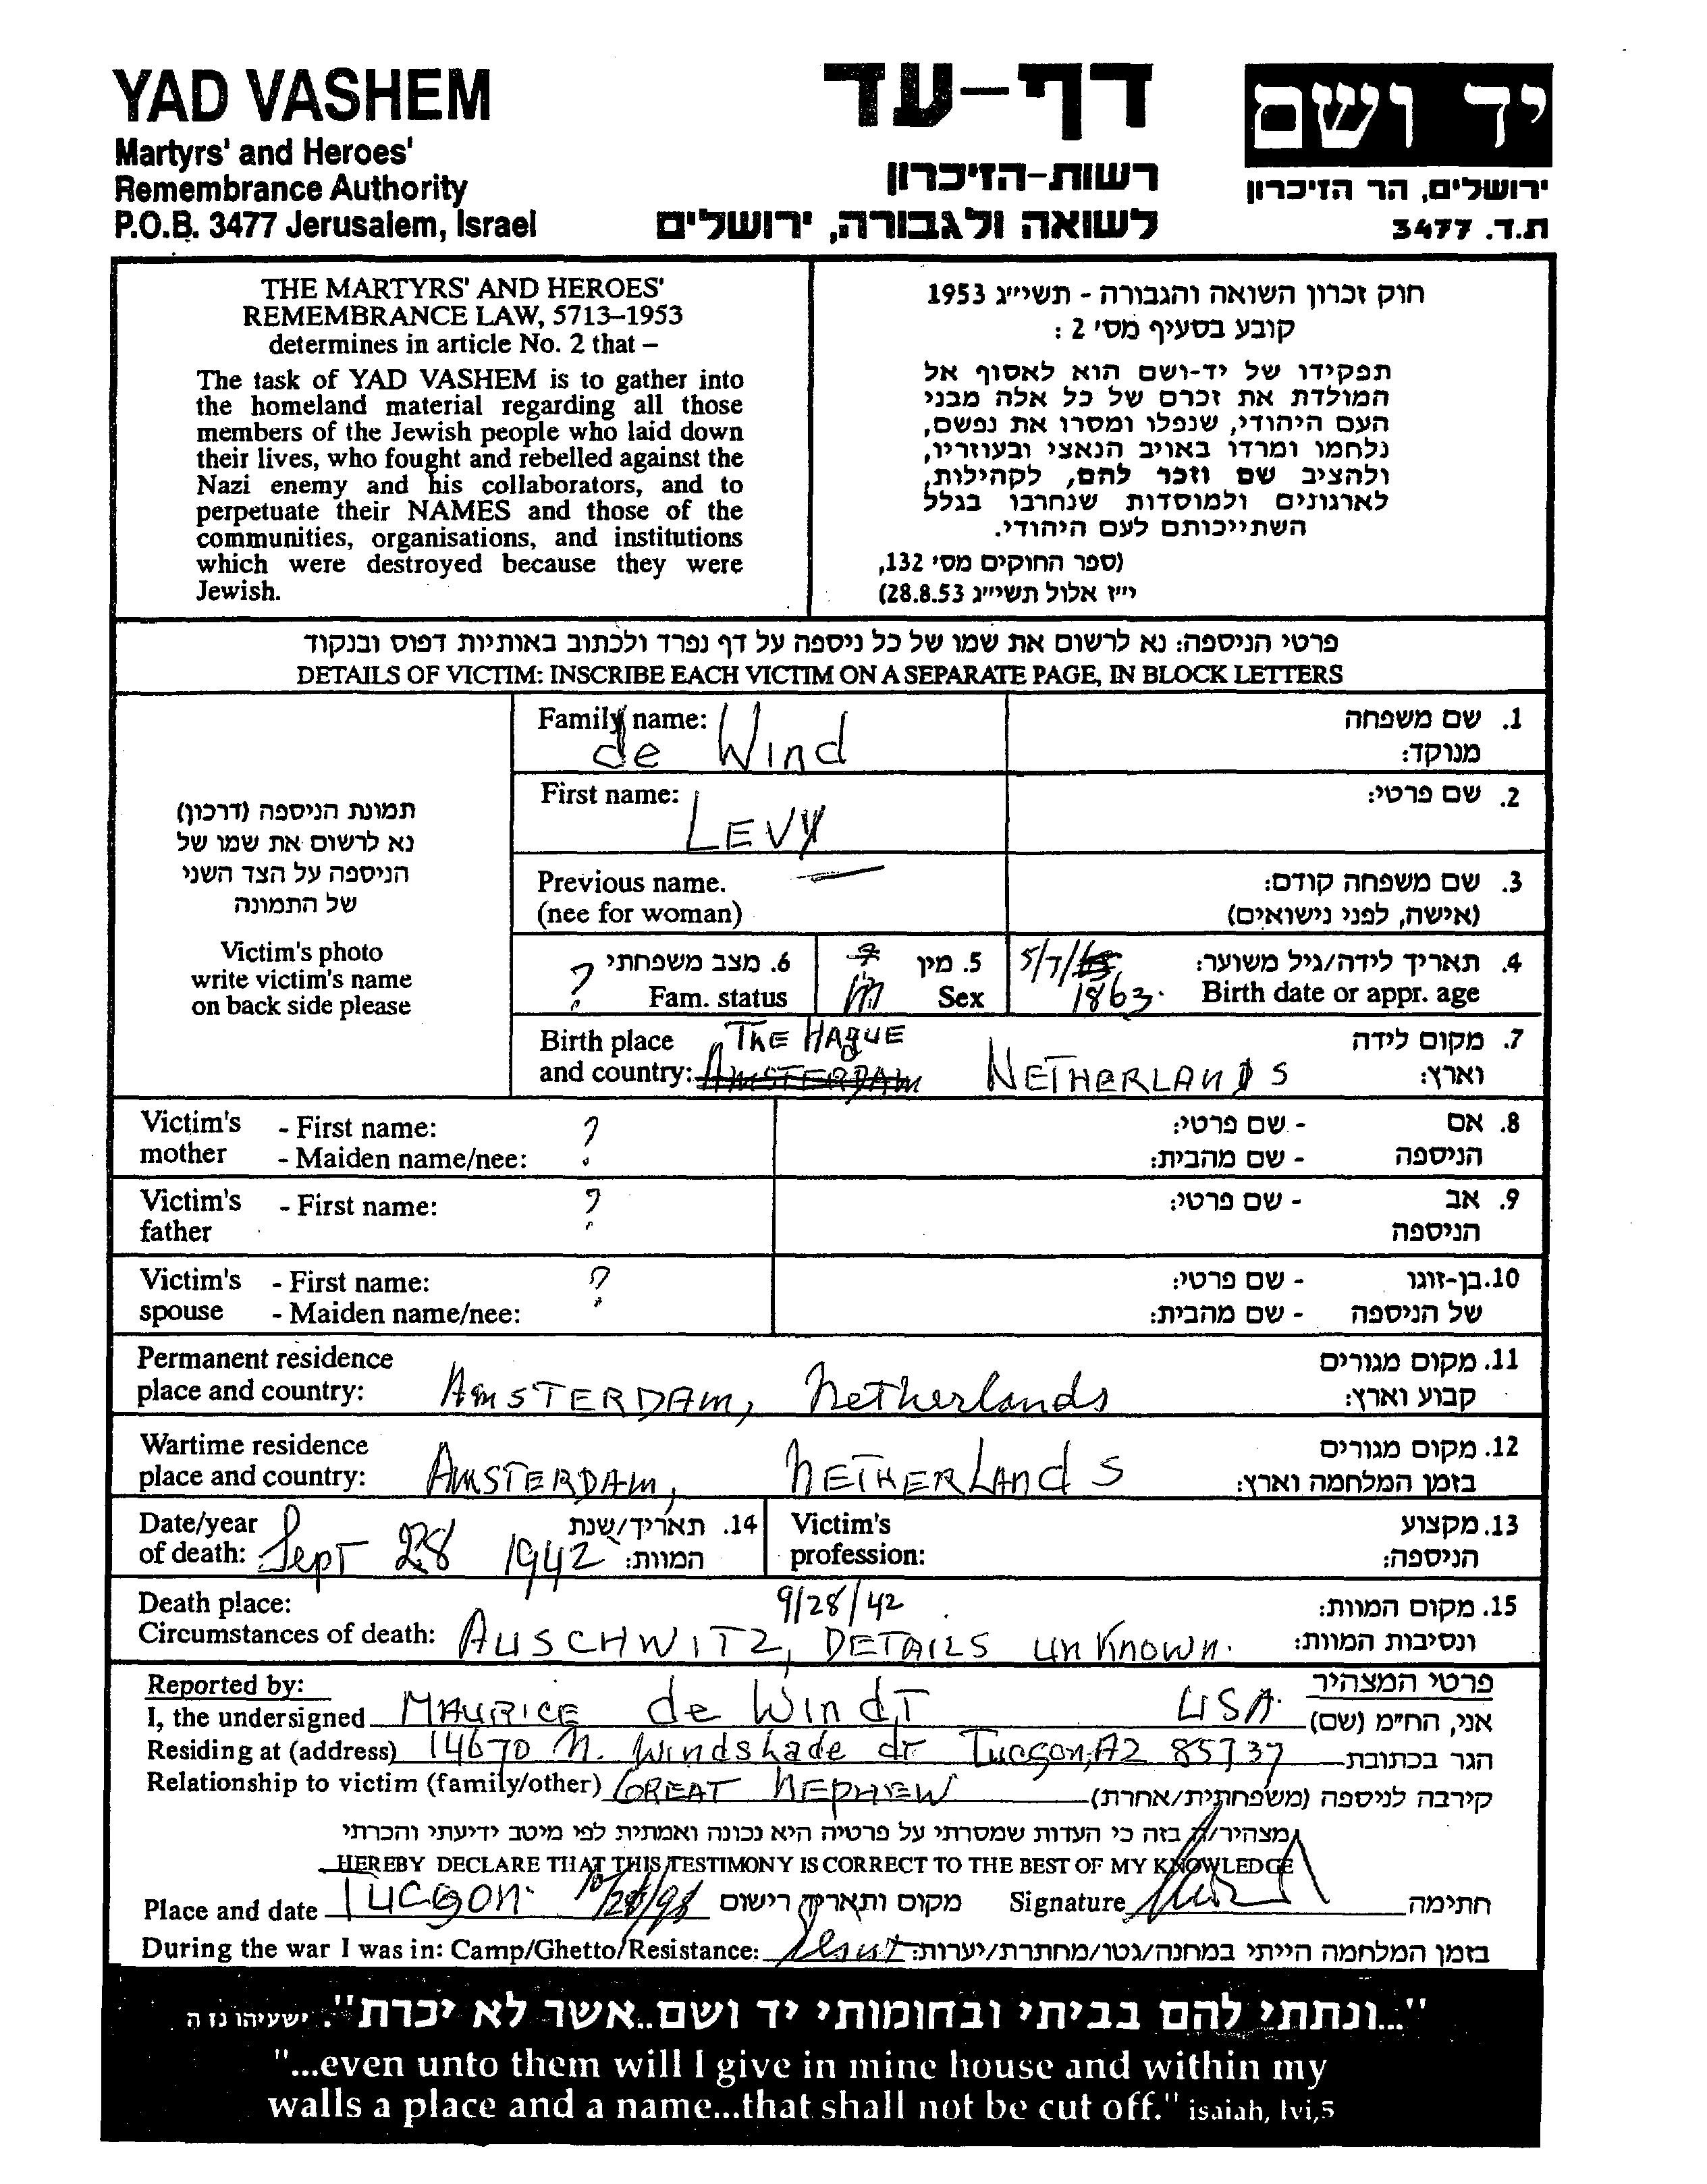 YAD VASHEM
Martyrs' and Heroes'
Remembrance Authority
P.O.B. 3477 Jerusalem, Israel
דף-עד
רשות-הזיכרון
לשואה ולגבורה, ירושלים
יד ושם
ירושלים, הר הזיכרון
ת.ד. 3477
THE MARTYRS' AND HEROES'
REMEMBRANCE LAW, 5713–1953
determines in article No. 2 that –
The task of YAD VASHEM is to gather into
the homeland material regarding all those
members of the Jewish people who laid down
their lives, who fought and rebelled against the
Nazi enemy and his collaborators, and to
perpetuate their NAMES and those of the
communities, organisations, and institutions
which were destroyed because they were
Jewish.
חוק זכרון השואה והגבורה - תשי״ג 1953
קובע בסעיף מס׳ 2 :
תפקידו של יד-ושם הוא לאסוף אל
המולדת את זכרם של כל אלה מבני
העם היהודי, שנפלו ומסרו את נפשם,
נלחמו ומרדו באויב הנאצי ובעוזריו,
ולהציב שם וזכר להם, לקהילות,
לארגונים ולמוסדות שנחרבו בגלל
השתייכותם לעם היהודי.
(ספר החוקים מס׳ 132,
י״ז אלול תשי״ג 28.8.53)
פרטי הניספה: נא לרשום את שמו של כל ניספה על דף נפרד ולכתוב באותיות דפוס ובנקוד
DETAILS OF VICTIM: INSCRIBE EACH VICTIM ON A SEPARATE PAGE, IN BLOCK LETTERS
תמונת הניספה (דרכון)
נא לרשום את שמו של
הניספה על הצד השני
של התמונה
Victim's photo
write victim's name
on back side please
Family name: de Wind
1. שם משפחה
מנוקד:
First name: LEVY
2. שם פרטי:
Previous name. —
(nee for woman)
3. שם משפחה קודם:
(אישה, לפני נישואים)
? 6. מצב משפחתי
Fam. status
m 5. מין
Sex
5/7/ 1863. 4. תאריך לידה/גיל משוער:
Birth date or appr. age
Birth place THE HAgUE
and country: AMSTERDAM NETHERLANDS
7. מקום לידה
וארץ:
Victim's - First name: ?
mother - Maiden name/nee:
8. אם - שם פרטי:
הניספה - שם מהבית:
Victim's - First name: ?
father
9. אב - שם פרטי:
הניספה
Victim's - First name: ?
spouse - Maiden name/nee:
10. בן-זוגו - שם פרטי:
של הניספה - שם מהבית:
Permanent residence
place and country: AmSTERDAm, netherlands
11. מקום מגורים
קבוע וארץ:
Wartime residence
place and country: AMSTERDAM, NETHERLAndS
12. מקום מגורים
בזמן המלחמה וארץ:
Date/year
of death: Sept 28 1942
14. תאריך/שנת
המוות:
Victim's
profession:
13. מקצוע
הניספה:
Death place: 9/28/42
Circumstances of death: AUSCHWITZ, DETAILS unKnown.
15. מקום המוות:
ונסיבות המוות:
Reported by:
פרטי המצהיר
I, the undersigned MAURICE de WindT USA. אני, הח״מ (שם)
Residing at (address) 14670 N. Windshade dr Tucson, AZ 85737 הגר בכתובת
Relationship to victim (family/other) GREAT NEPHEW קירבה לניספה (משפחתית/אחרת)
מצהיר/ה בזה כי העדות שמסרתי על פרטיה היא נכונה ואמתית לפי מיטב ידיעתי והכרתי
HEREBY DECLARE THAT THIS TESTIMONY IS CORRECT TO THE BEST OF MY KNOWLEDGE
Place and date TUCSON 10/28/98 מקום ותאריך רישום Signature חתימה
During the war I was in: Camp/Ghetto/Resistance: בזמן המלחמה הייתי במחנה/גטו/מחתרת/יערות:
"...ונתתי להם בביתי ובחומותי יד ושם..אשר לא יכרת". ישעיהו נו ה
"...even unto them will I give in mine house and within my
walls a place and a name...that shall not be cut off." isaiah, lvi,5